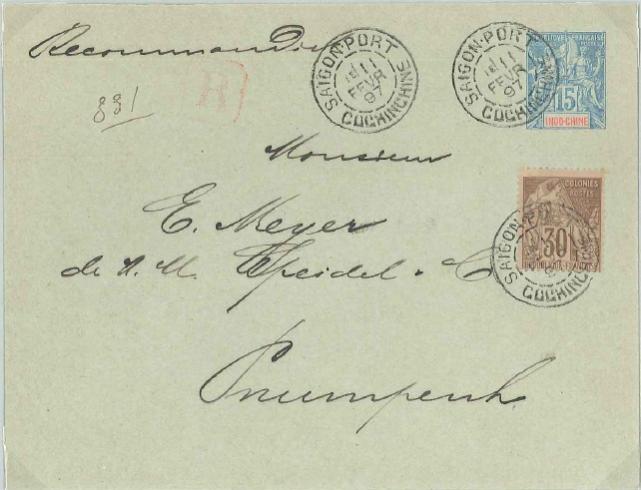 Recommandée
R
831
SAIGON-PORT
11
FEVR
97
COCHINCHINE
SAIGON-PORT
11
FEVR
97
COCHINCHINE
15
INDO-CHINE
Monsieur
COLONIES
POSTES
30
SAIGON-PORT
COCHINCHINE
E. Meyer
de M. M. Speidel & C
Pnumpenh